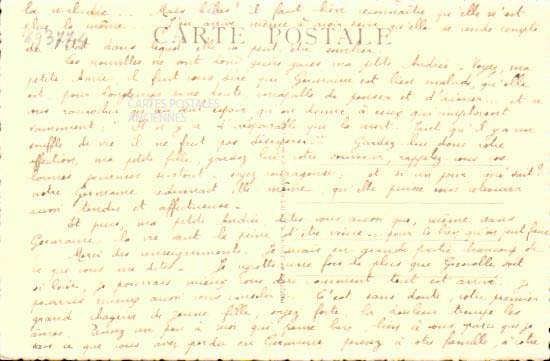 la maladie ... Mais hélas ! il faut bien reconnaître qu'elle n'est
plus la même. J'en arrive même à avoir peur qu'elle se rende compte
693774
CARTE POSTALE
de l'état dans lequel elle a peut être sombrer.
Les nouvelles ne sont donc guère gaies ma petite Andrée. Voyez, ma
petite Amie, il faut vous dire que Germaine est bien malade, qu'elle
est pour longtemps sans doute incapable de penser et d'aimer... et se
vous raccrocher à cet espoir qu'on donne à ceux qui
CARTES POSTALES
ANCIENNES
vraiment : Il n'y a d'irréparable que la mort. Tant qu'il y a un
souffle de vie il ne faut pas désespérer. Gardez-lui donc votre
affection, ma petite fille, gardez lui votre souvenir, rappelez vous vos
bonnes journées surtout. Soyez courageuse : et si un jour, qui sait ?
notre Germaine redevenait elle même, qu'elle puisse vous retrouver
aussi tendre et affectueuse.
Et puis, ma petite Andrée dites vous aussi que, même sans
Germaine, la vie vaut la peine d'être vécue... pour le bien qu'on peut faire
Merci des renseignements. Je savais en grande partie beaucoup de
ce que vous me dites. Je regrette une fois de plus que Grenoble soit
si loin, je pourrais mieux vous dire comment tout est arrivé. Je
pourrais mieux aussi vous consoler. C'est sans doute votre premier
grand chagrin de jeune fille, soyez forte, la douleur trempe les
âmes. Pensez un peu à moi qui pense bien, bien à vous parce que je
sais ce que vous avez perdu en Germaine, pensez à votre famille, à votre